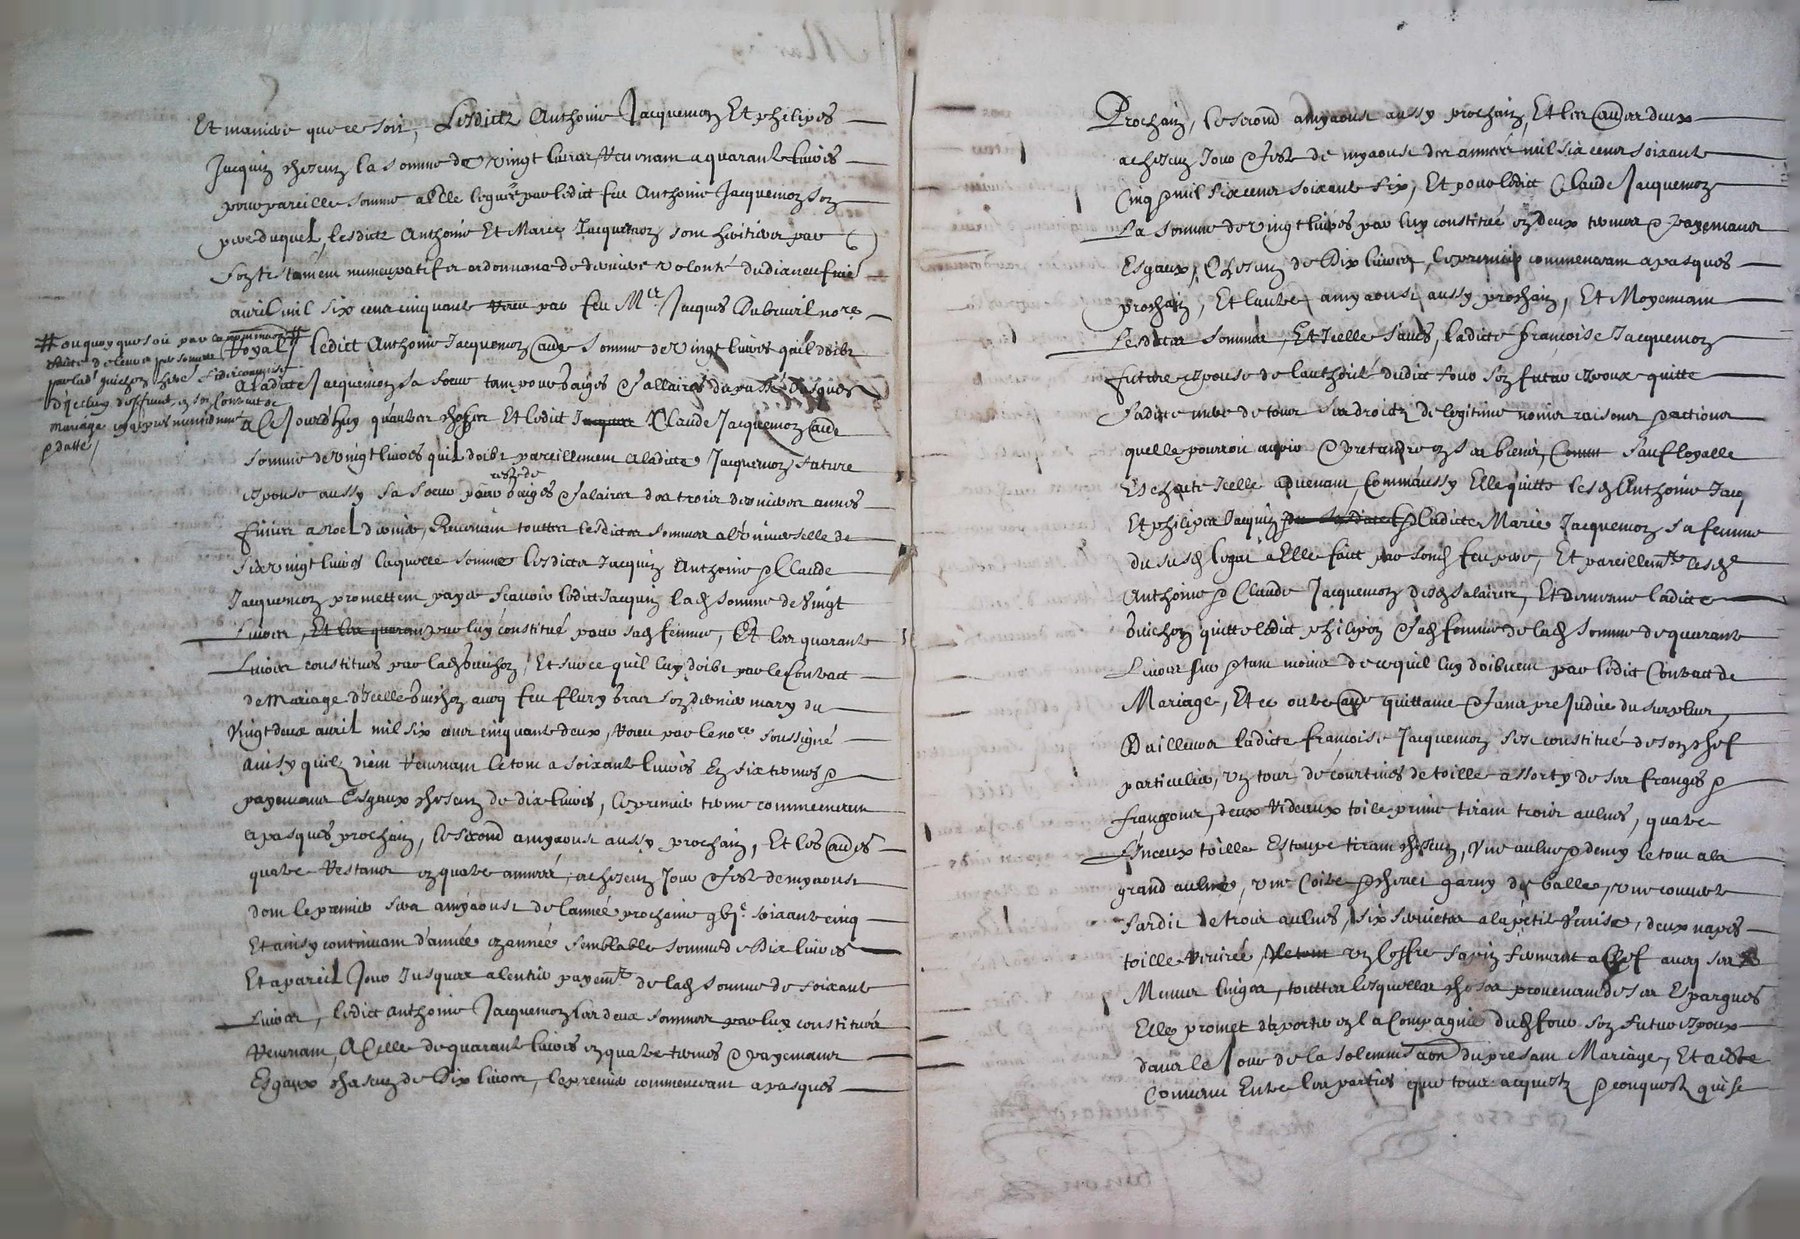 Et maniere que ce soit, Lesdictz Anthoine Jacquemon Et philipes
Jacquin chescun la somme de vingt livres, Revenant a quarante livres
pour pareille somme a Elle leguée par ledict feu Anthoine Jacquemon son
pere duquel lesdictz Anthoine Et Marie Jacquemon sont heritiers par
son testament nuncupatif et ordonnance de derniere volonté du dix neufvie
avril mil six cens cinquante receu par feu Me Jacques Dubreuil nore
Royal # ledict Anthoine Jacquemon aue somme de vingt livres qu'il doibt
a ladicte Jacquemon sa soeur tam pour gaiges & sallaires du passé Jusques
a Ce Jourd'huy qu'autres choses Et ledict Claude Jacquemon aue
somme de vingt livres quil doibt pareillement a ladicte Jacquemon future
reste de
espouse aussy sa soeur pour gaiges & salaires des trois dernieres annes
finies a noel dernier, Revenant touttes lesdictes sommes a l'universelle de
six vingt livres laquelle somme lesdictz Jacquin Anthoine & Claude
Jacquemon promettent payer scavoir ledict Jacquin lad somme de vingt
livres, par luy constitué pour sad femme, Et les quarante
livres constitués par lad Guichon, Et sur ce qu'il luy doibt par le Contract
de Mariage d'Icelle Guichon avecq feu fleury son dernier mary du
Vingt deux avril mil six cens cinquante deux, Receu par le nore soussigné
ainsy quilz dient Revenant le tout a soixante livres En six termes &
payemans Esgaux chescun de dix livres, le premier terme commencant
a pasques prochain, le second a myaoust aussy prochain, Et les aues
quatre Restans en quatre années, a chescun Jour & feste de myaoust
dont le premier sera a myaoust de l'année prochaine soixante cinq
Et ainsy continuant d'année en année semblable somme de Dix livres
Et a pareil Jour Jusques a l'entier payemt de lad somme de soixante
Livres, ledict Anthoine Jacquemon les deux sommes par luy constituées
Revenant, A Celle de quarante livres en quatre termes & payemans
Esgaux chascun de Dix livres, le premier commencant a pasques
# ou quoy que soit par
mariage
& datte /
Prochain, le second a myaoust aussy prochain, Et les aues deux
a chescun Jour & feste de myaoust des années mil six cens soixante
Cinq & mil six cens soixante six, Et pour ledict Claude Jacquemon
La somme de vingt livres par luy constitué en deux termes & payemans
Esgaux, Chescun de Dix livres, le premier commencant a pasques
prochain, Et l'autre a myaoust aussy prochain, Et Moyennant
Lesdictes sommes, Et Icelle sauves, ladicte francoise Jacquemon
future espouse de l'authorité dudict Jour son futur espoux quitte
sadicte mere de tous ses droictz de legitime noms raisons & actions
quelle pourroit avoir & pretendre en ses biens, sauf loyalle
Escheute Icelle advenant, Comm'aussy Elle quitte lesd Anthoine Jacq
Et philipes Jacquin & ladicte Marie Jacquemon sa femme
du susd legat a Elle faict par sond feu pere, Et pareillemt lesd
Anthoine & Claude Jacquemon desd salaires, Et d'mesme ladicte
Guichon quitte ledict philipon & sad femme de lad somme de quarante
Livres sur & tant moins de ce quil luy doibvent par ledict Contract de
Mariage, Et ce outre aue quittance & sans preJudice du surplus,
D'ailleurs ladicte francoise Jacquemon s'est constitué de son chef
particulier, un tour de courtines de toille assorty de ses franges &
frangeons, deux rideaux toile prime tirant trois aulnes, quatre
Linceux toille Estoupe tirant chescun, une aulne & demy le tout a la
grand aulne, une Coitre & chevet garny de balle, une couverte
sardit de trois aulnes, six serviettes a la petite Venise, deux napes
toille un Coffre sapin fermant a Clef avecq ses
Menus linges, touttes lesquelles choses provenant de ses Espargnes
Elle promet d'aporter en la Compagnie dud Jour son futur espoux
dans le Jour de la solemnisaon du present Mariage, Et a esté
Convenu Entre les parties que tous acquestz & conquestz qui se